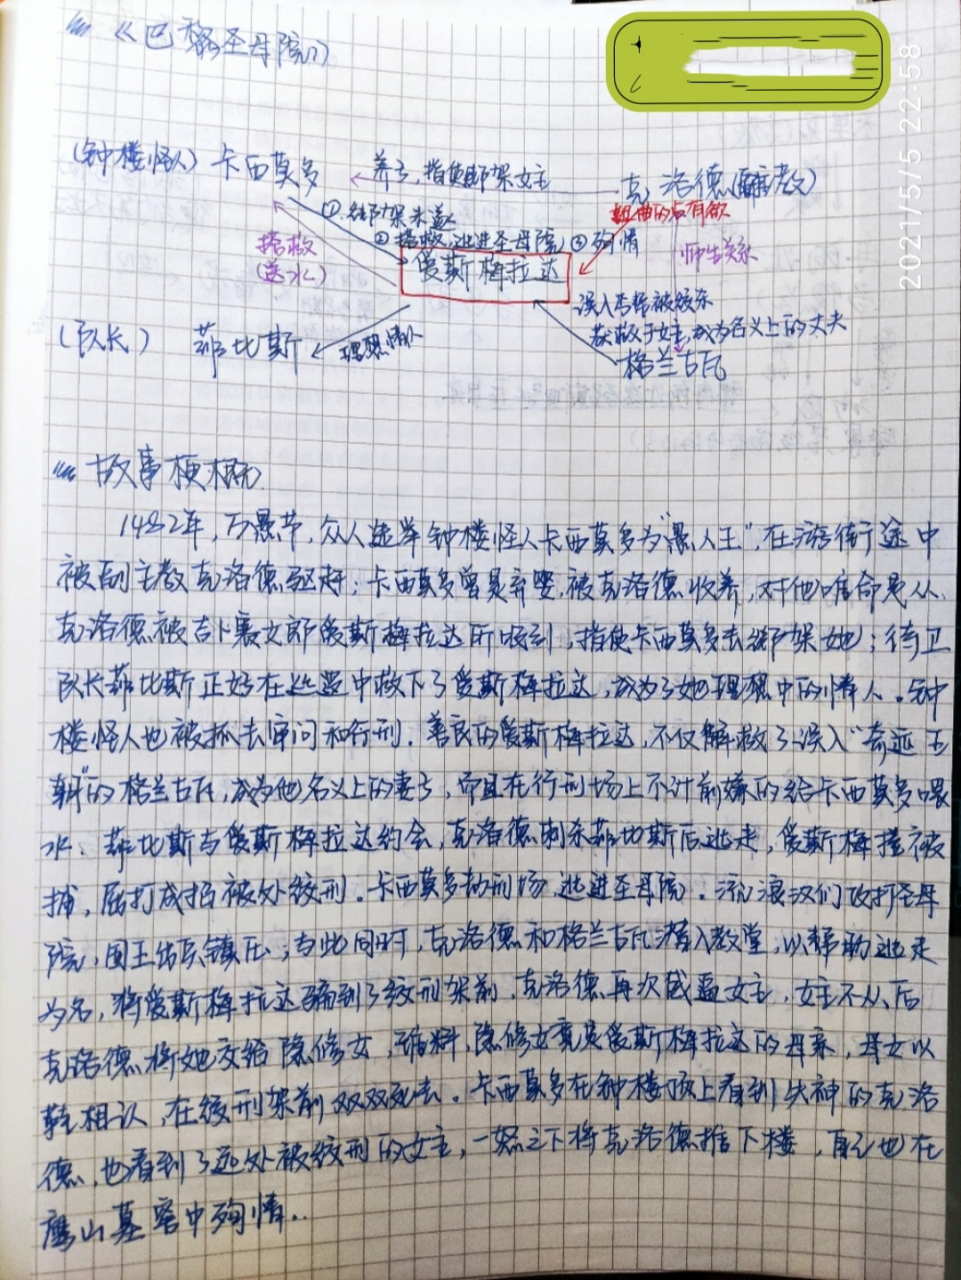 《巴黎圣母院》
2021/5/5 22:58
(钟楼怪人) 卡西莫多
养子,指使绑架女主
克洛德(副主教)
①绑架未遂
②搭救,逃进圣母院 ③殉情
扭曲的占有欲
搭救
(送水)
爱斯梅拉达
师生关系
误入丐帮被绞杀
获救于女主,成为名义上的丈夫
(队长) 菲比斯
理想情人
格兰古瓦
故事梗概
1482年,万愚节,众人选举钟楼怪人卡西莫多为"愚人王",在游街途中
被副主教克洛德驱赶;卡西莫多曾是弃婴,被克洛德收养,对他唯命是从,
克洛德被吉卜赛女郎爱斯梅拉达所吸引,指使卡西莫多去绑架她;侍卫
队长菲比斯正好在巡逻中救下了爱斯梅拉达,成为了她理想中的情人。钟
楼怪人也被抓去审问和行刑。善良的爱斯梅拉达,不仅解救了误入"奇迹王
朝"的格兰古瓦,成为他名义上的妻子,而且在行刑场上不计前嫌的给卡西莫多喂
水。菲比斯与爱斯梅拉达约会,克洛德刺杀菲比斯后逃走,爱斯梅 被
捕,屈打成招被处绞刑。卡西莫多劫刑场,逃进圣母院。流浪汉们攻打圣母
院,国王出兵镇压;与此同时,克洛德和格兰古瓦潜入教堂,以帮助逃走
为名,将爱斯梅拉达骗到了绞刑架前,克洛德再次威逼女主,女主不从,后
克洛德将她交给隐修女,谁料,隐修女竟是爱斯梅拉达的母亲,母女以
鞋相认,在绞刑架前双双死去。卡西莫多在钟楼顶上看到失神的克洛
德,也看到了远处被绞刑的女主,一怒之下将克洛德推下楼,自己也在
鹰山墓窖中殉情..